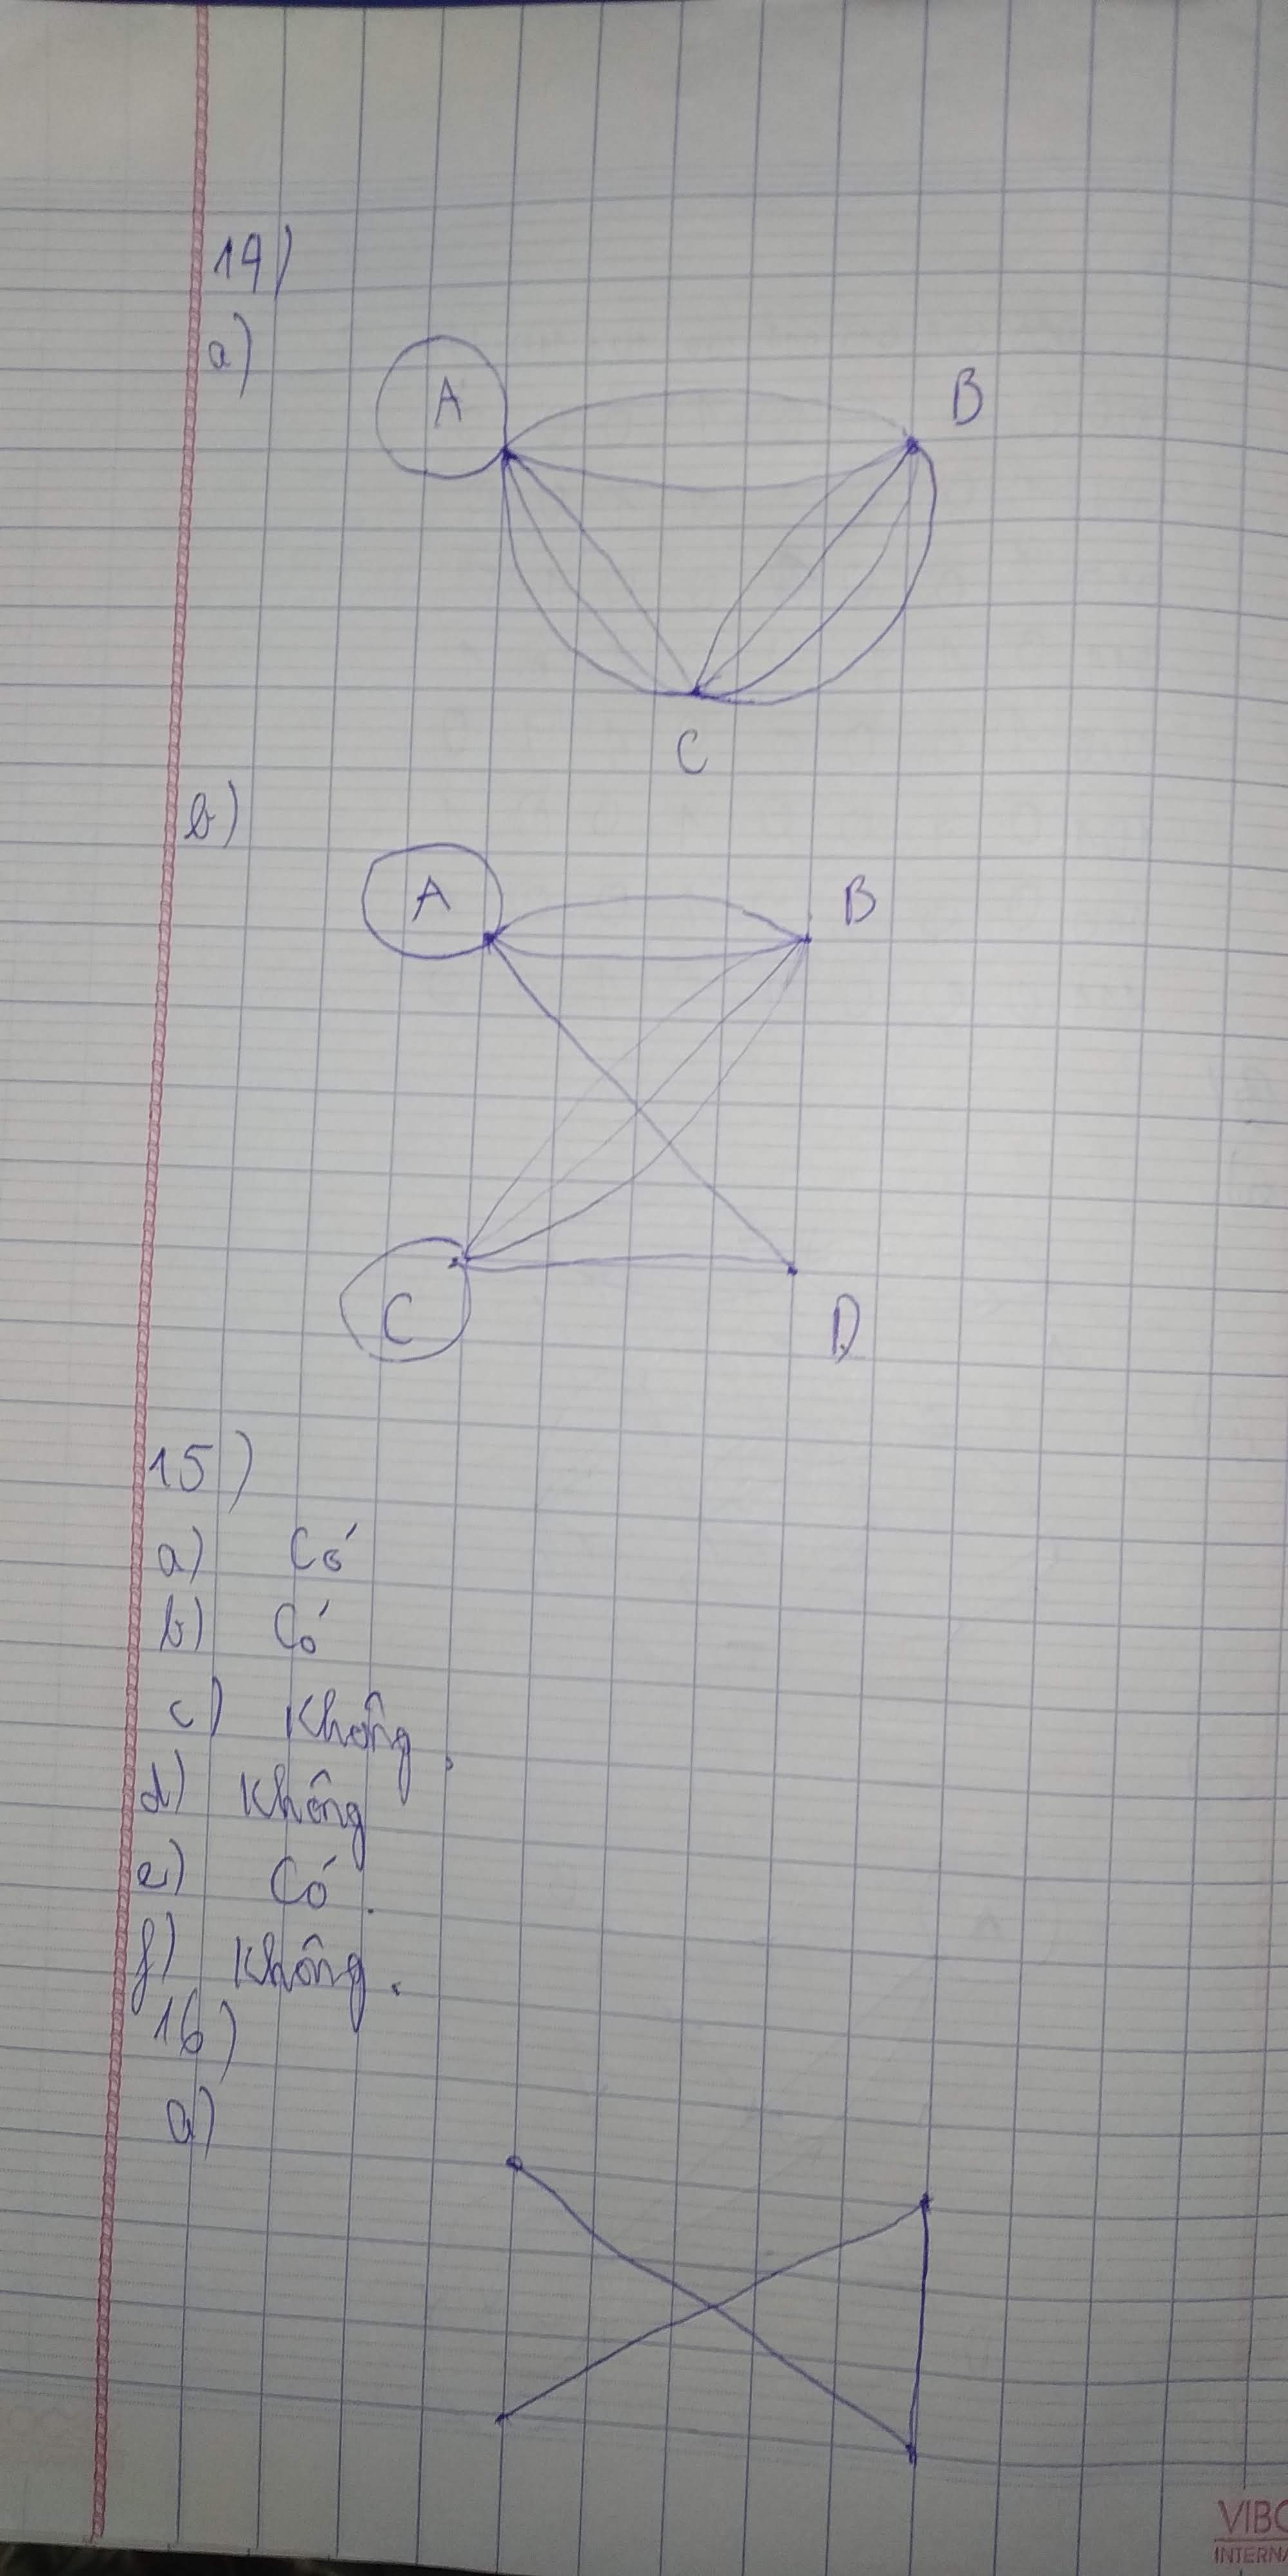 14)
a)
A
B
C
b)
A
B
C
D
15)
a) Có
b) Có
c) Không.
d) Không
e) Có.
f) Không.
16)
a)